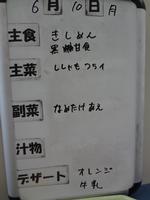 6月10日月
主食 きしめん
黒糖甘食
主菜 ししゃも フライ
副菜 なめたけあえ
汁物
デザート オレンジ
牛乳